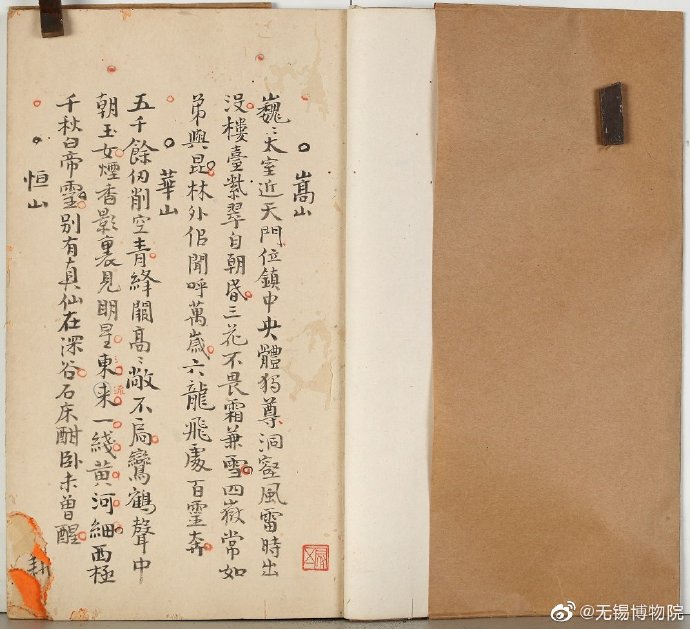 嵩山
巍〻太室近天門位鎮中央體獨尊洞壑風雷時出
没樓臺紫翠自朝昏三花不畏霜兼雪四嶽常如
弟與昆林外佀聞呼萬歲六龍飛處百靈奔
華山
五千餘仞削空青絳闕高〻敞不扃鸞鶴聲中
朝玉女煙香影裏見明星東来一綫黄河細西極
流
千秋白帝靈别有真仙在深谷石床酣卧未曾醒
恒山
@无锡博物院